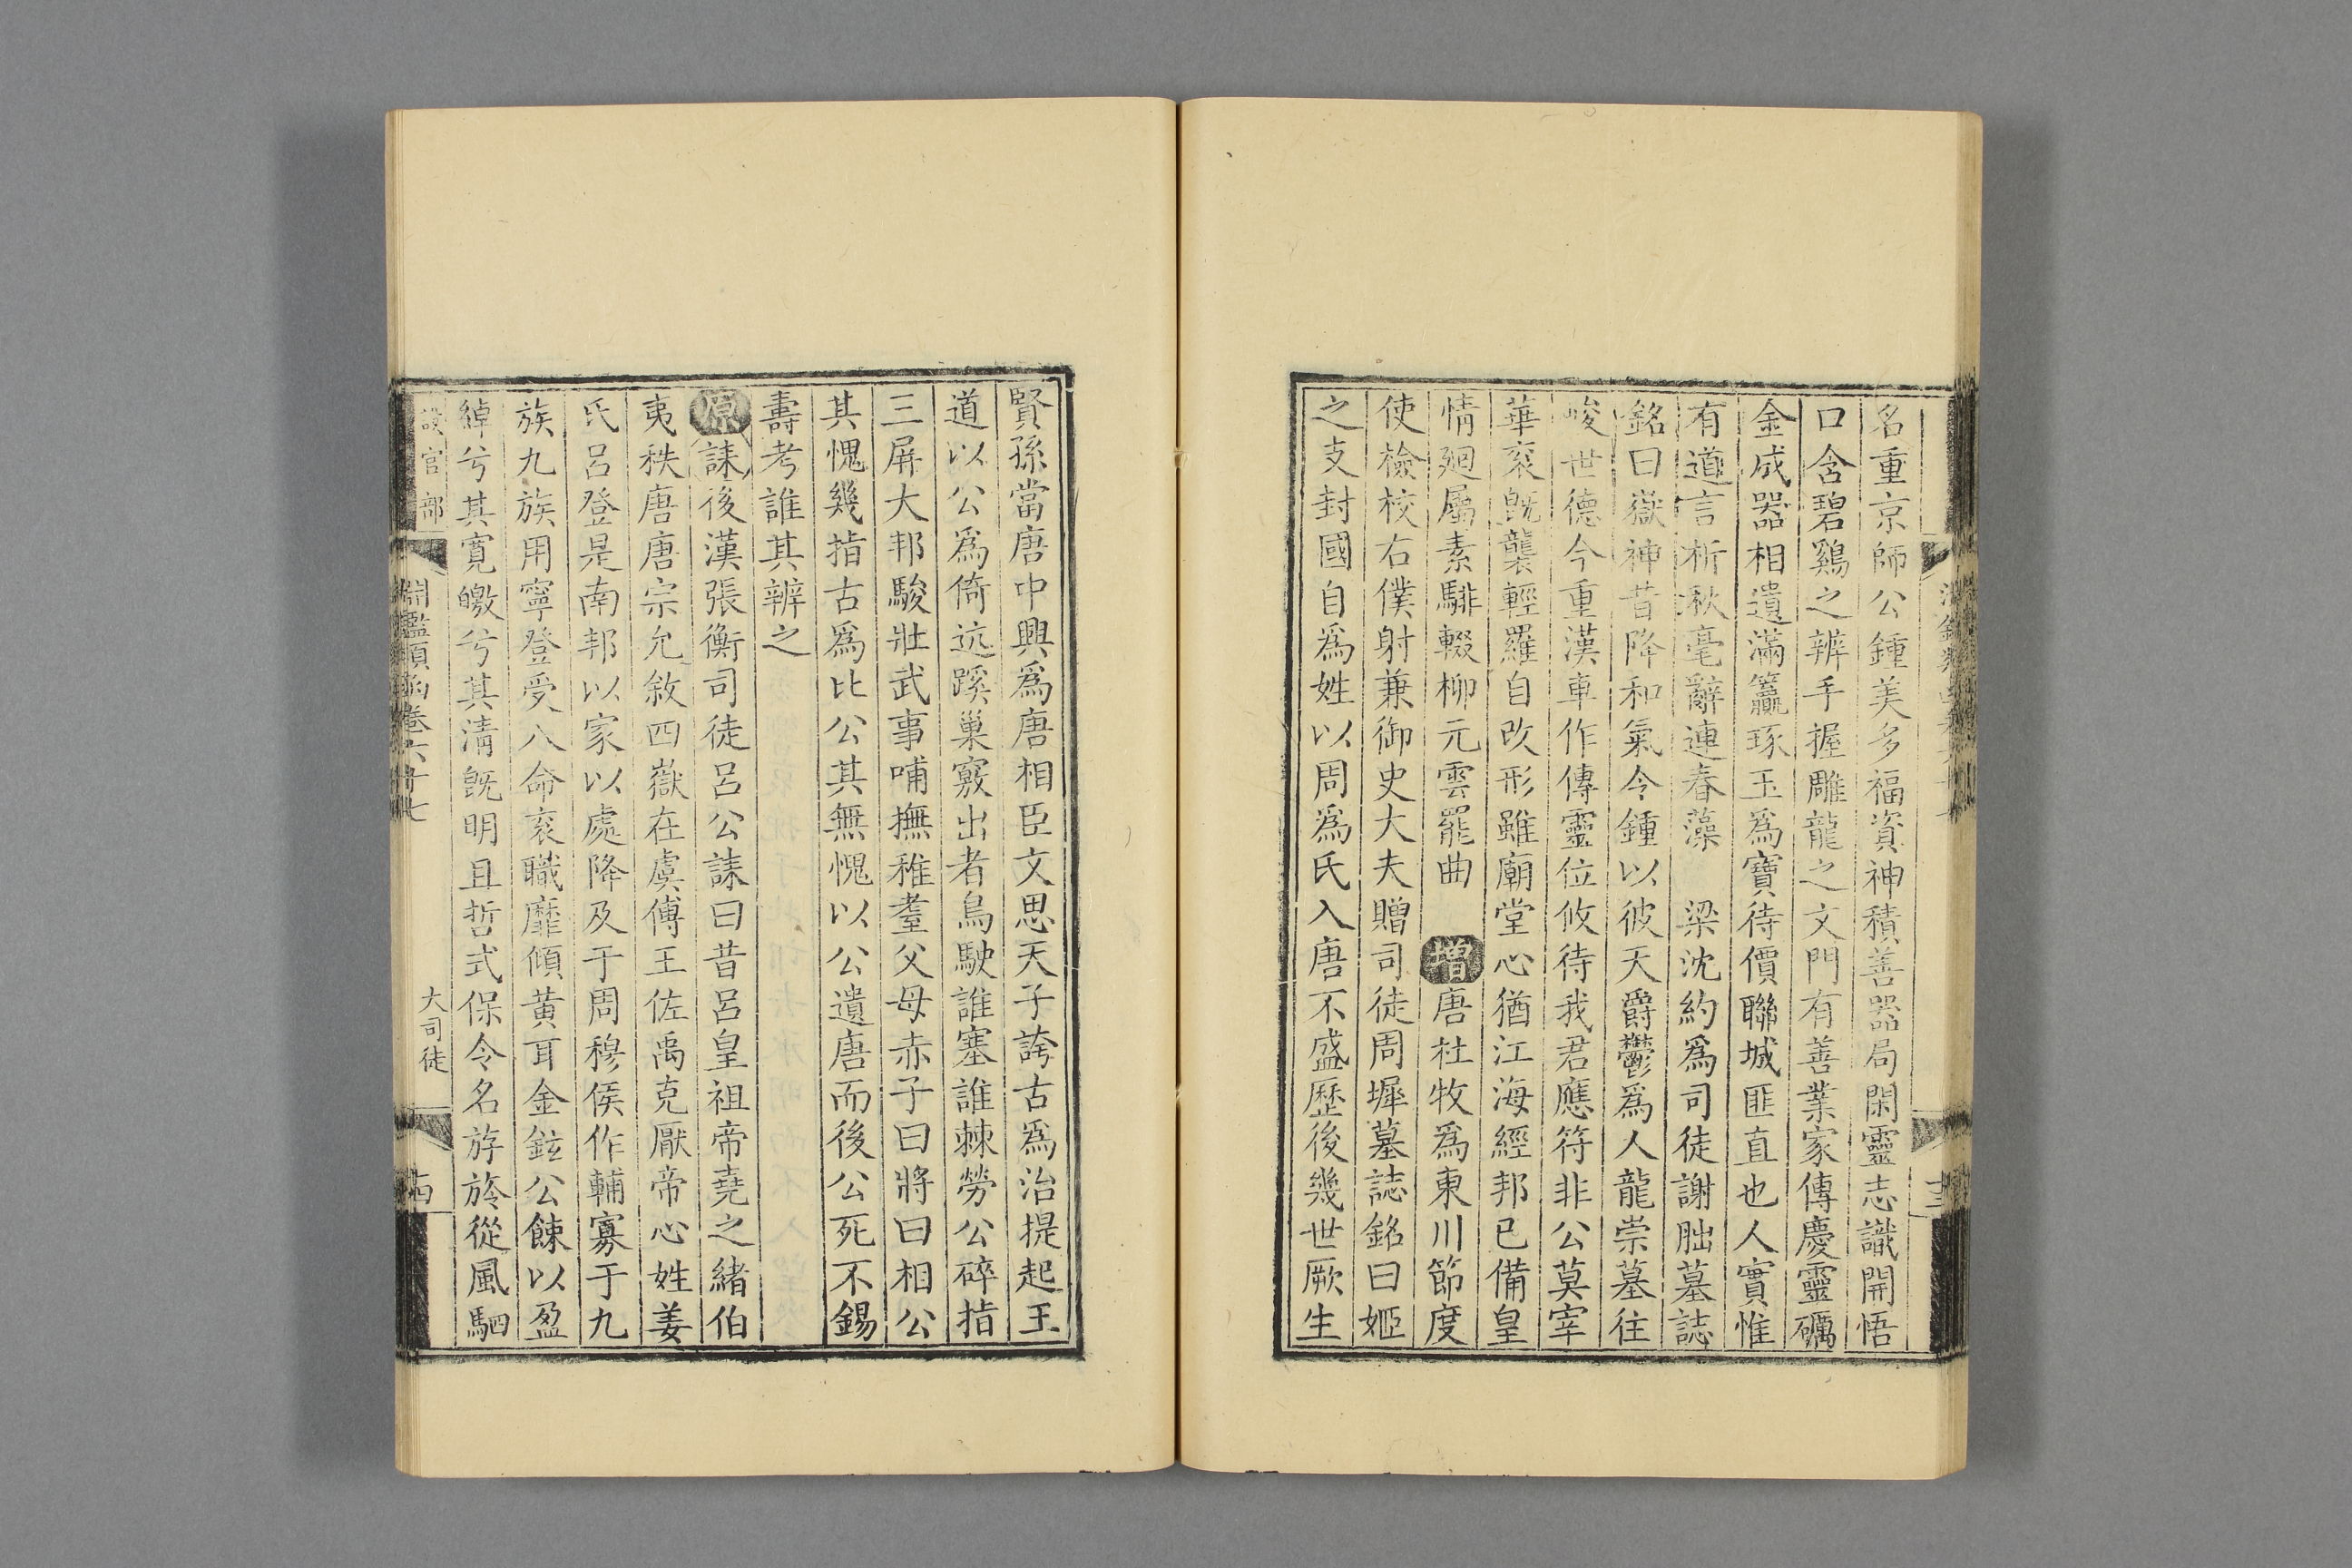 名重京師公鍾美多福資神積善器局閑靈志識開悟
口含碧鷄之辨手握雕龍之文門有善業家傳慶靈礪
金成器相遺滿籯琢玉爲寶待價聯城匪直也人實惟
有道言析秋毫辭連春藻　梁沈約爲司徒謝朏墓誌
銘曰嶽神昔降和氣今鍾以彼天爵鬱爲人龍崇墓往
峻世德今重漢車作傳靈位攸待我君應符非公莫宰
華袞旣襲輕羅自改形雖廟堂心猶江海經邦已備皇
情廻屬素騑輟柳元雲罷曲　增唐杜牧爲東川節度
使檢校右僕射兼御史大夫贈司徒周墀墓誌銘曰姬
之支封國自爲姓以周爲氏入唐不盛歷後幾世厥生
賢孫當唐中興爲唐相臣文思天子誇古爲治提起王
道以公爲倚远蹊巢竅出者鳥駛誰塞誰棘勞公碎指
三屏大邦駿壯武事哺撫稚耋父母赤子曰將曰相公
其愧幾指古爲比公其無愧以公遺唐而後公死不錫
壽考誰其辨之
原誄後漢張衡司徒呂公誄曰昔呂皇祖帝堯之緒伯
夷秩唐唐宗允敘四嶽在虞傅王佐禹克厭帝心姓姜
氏呂登是南邦以家以處降及于周穆侯作輔寡于九
族九族用寧登受八命袞職靡傾黃耳金鉉公餗以盈
綽兮其寬皦兮其清旣明且哲式保令名斿旍從風駟
設官部
淵鑑類函卷六十七
大司徒